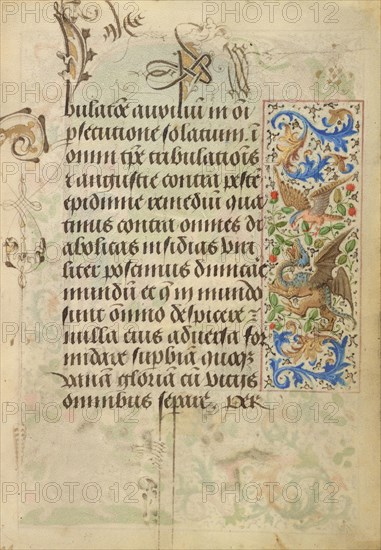 bulatōe auxiliū in oī
psecutione solatium. ī
omni tpe tribulatiōis
⁊ angustie contra pestē
epidimie remediū qua
tinus contra omnes di
abolicas insidias viri
liter possimus dimicare
mundū et q̄ in mundo
sunt omīo despicere ⁊
nulla eius aduersa for
midare supbiā quoqꝫ
vanā gloriā cū vicijs
omnibus separe. Per
PHOTO12